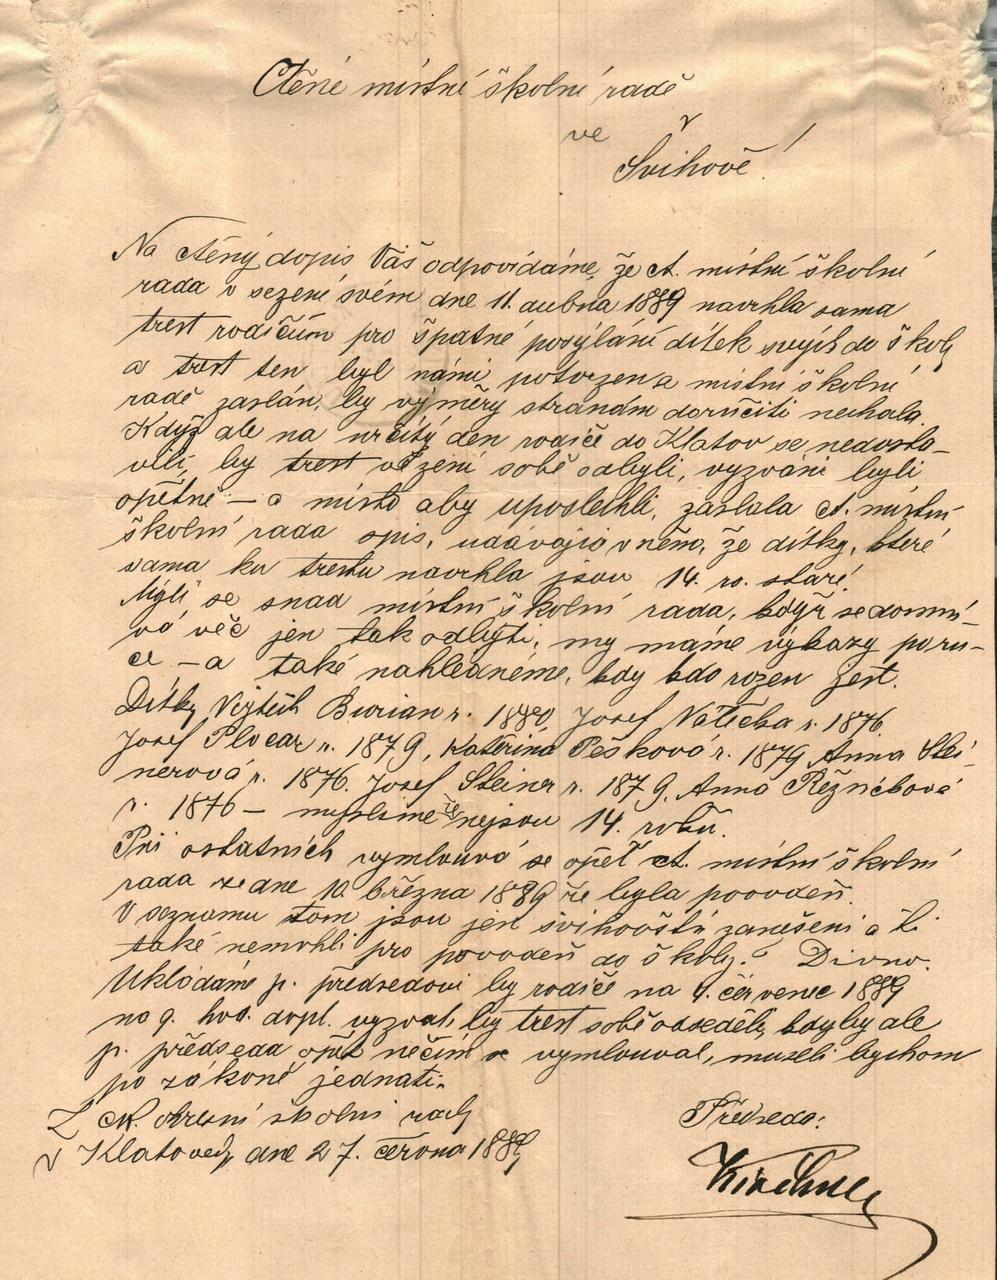 Ctěné místní školní radě
ve
Švihově!
Na ctěný dopis Váš odpovídáme, že ct. místní školní
rada v sezení svém dne 11. dubna 1889 navrhla sama
trest rodičům pro špatné posýlání dítek svých do školy
a trest ten byl námi potvrzen a místní školní
radě zaslán, by výměry stranám doručiti nechala.
Když ale na určitý den rodiče do Klatov se nedosta-
vili, by trest vězení sobě odbyli, vyzváni byli
opětně – a místo aby uposlechli, zaslala ct. místní
školní rada opis, udávajíc v něm, že dítky, které
sama ku trestu navrhla jsou 14. ro. staré.
Mýlí se snad místní školní rada, když se domní-
vá věc jen tak odbýti, my máme výkazy po ru-
ce – a také nahlédneme, kdy kdo rozen jest.
Dítky Vojtěch Burian r. 1880, Josef r. 1876,
Josef Plocar r. 1879, Kateřina Pešková r. 1879 Anna Stei-
nerová r. 1876. Josef Steiner r. 1879, Anna Řezníčková
r. 1876 – myslíme že nejsou 14. roků.
Při ostatních vymlouvá se opět ct. místní školní
rada ze dne 10. března 1889 že byla povodeň.
V seznamu tom jsou jen švihovští zanešeni a ti
také nemohli pro povodeň do školy? Divno.
Ukládáme p. předsedovi by rodiče na 4. červenec 1889
na 9. hod. dopl. vyzval by trest sobě odseděli, kdyby ale
p. předseda opět něčím se vymlouval, museli bychom
po zákoně jednati.
Z ck. okresní školní rady
v Klatovech dne 27. června 1889
Předseda: